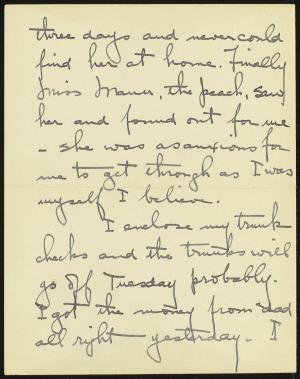 three days and never could
find her at home. Finally
Miss Maner, the peach, saw
her and found out for me
- she was as anxious for
me to get through as I was
myself I believe.
I enclose my trunk
checks and the trunks will
go off Tuesday probably.
I got the money from dad
all right yesterday. I